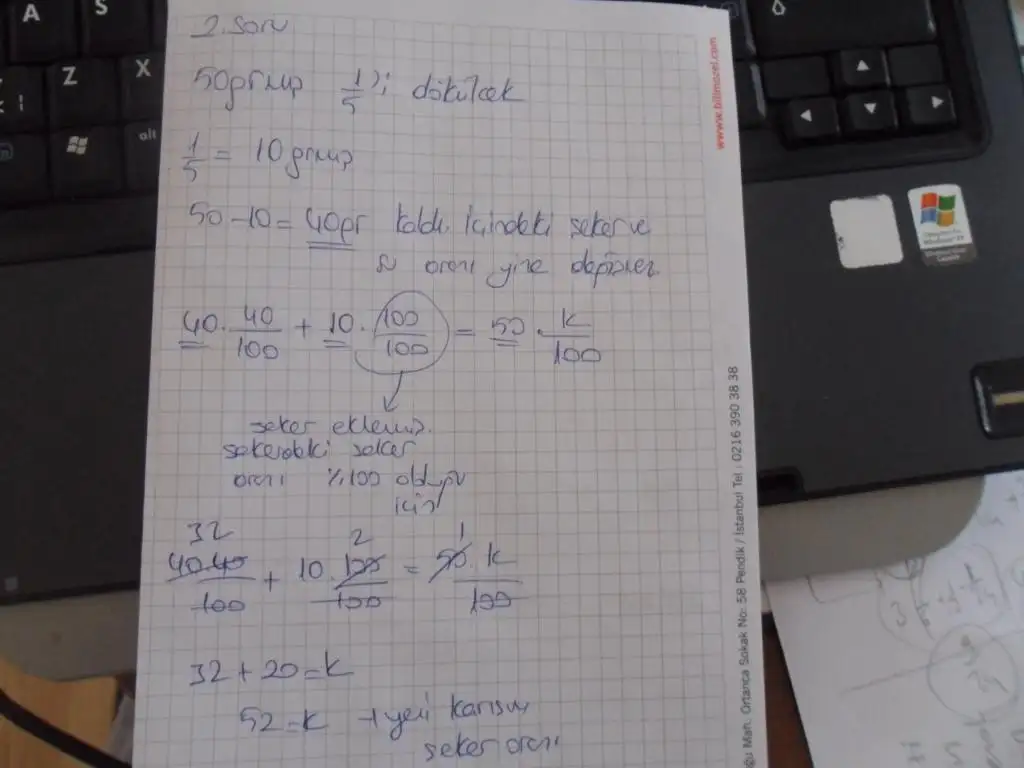 2. Soru
50 gr mıış 1/5'i dökülcek
1/5 = 10 grmış
50 - 10 = 40 gr kaldı içindeki seker ve
su oranı yine değişmez
40 . 40/100 + 10 . 100/100 = 50 . k/100
seker eklemiş.
sekerdeki seker
oranı %100 olduğu
için
32 2 1
40.40/100 + 10.100/100 = 50.k/100
32 + 20 = k
52 = k → yeni karısım
seker oranı
www.bilimared.com
ğu Mah. Ortanca Sokak No: 58 Pendik / İstanbul Tel : 0216 390 38 38
A
S
Z
X
alt